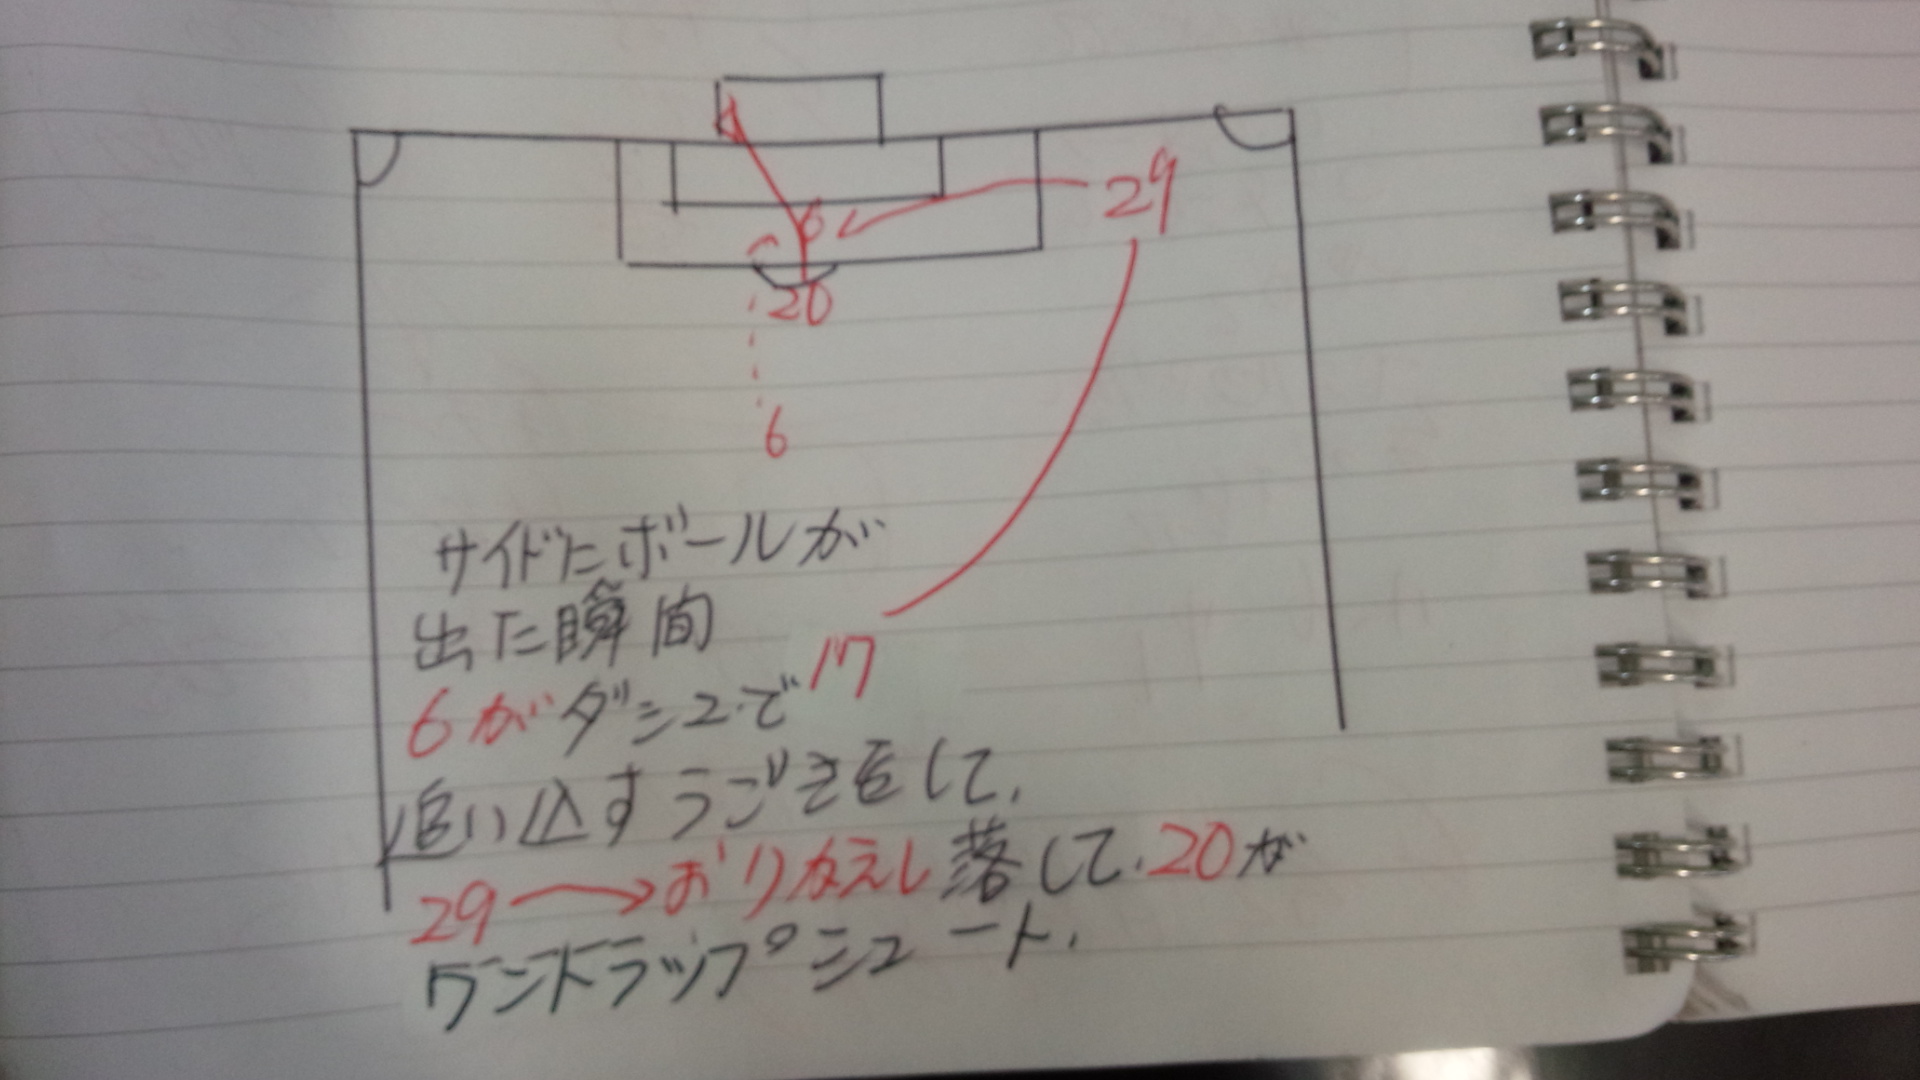 29
6
20
6
サイドにボールが
出た瞬間
17
6がダシュで
追い込すうごきをして、
29→おりかえし落して、20が
ワントラップシュート、